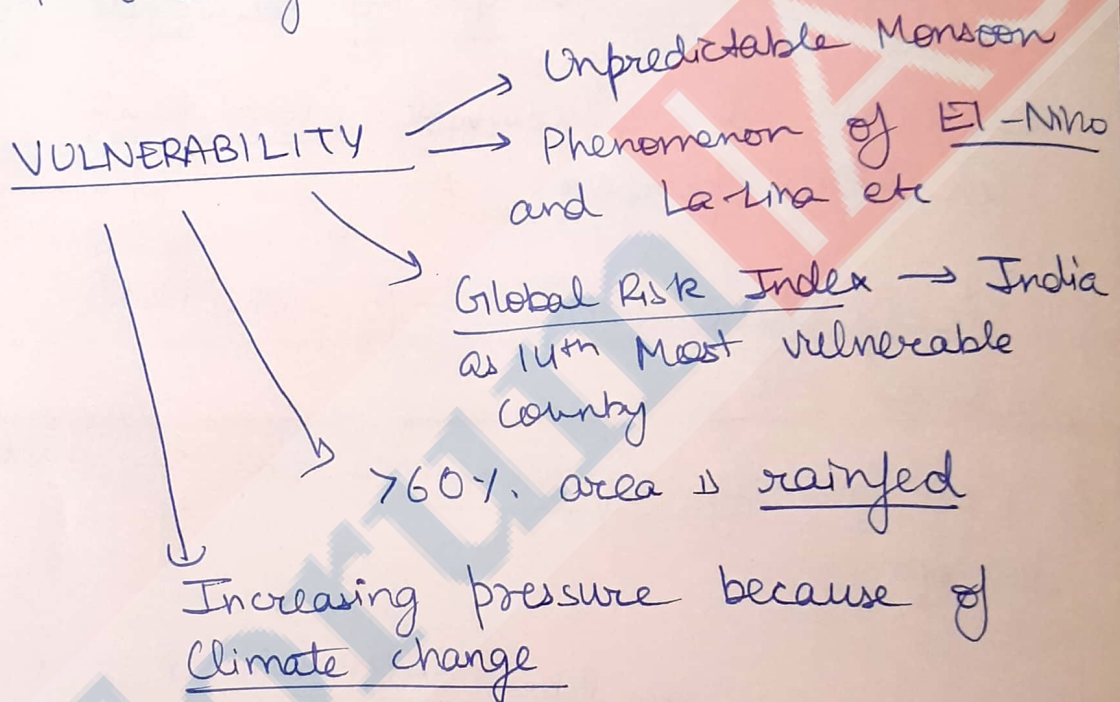 Unpredictable Monsoon
VULNERABILITY
Phenomenon of El-Nino
and La-Lina etc
Global Risk Index → India
as 14th Most vulnerable
county
>60% area is rainfed
Increasing pressure because of
Climate change